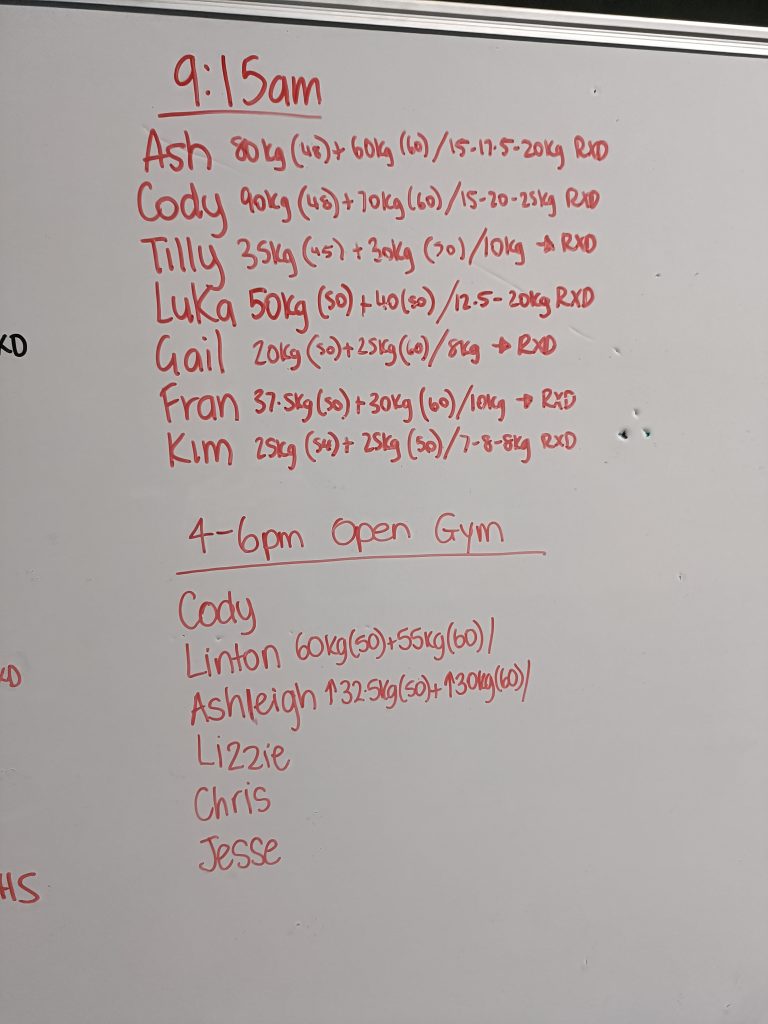 9:15am
Ash 80kg (48) + 60kg (60) / 15-17.5-20kg RXD
Cody 90kg (48) + 70kg (60) / 15-20-25kg RXD
Tilly 35kg (45) + 30kg (50) / 10kg → RXD
Luka 50kg (50) + 40 (50) / 12.5-20kg RXD
XD
Gail 20kg (50) + 25kg (60) / 8kg → RXD
Fran 37.5kg (50) + 30kg (60) / 10kg → RXD
Kim 25kg (54) + 25kg (50) / 7-8-8kg RXD
4-6pm Open Gym
Cody
Linton 60kg (50) + 55kg (60) /
XD
Ashleigh ↑32.5kg (50) + ↑30kg (60) /
Lizzie
Chris
Jesse
HS